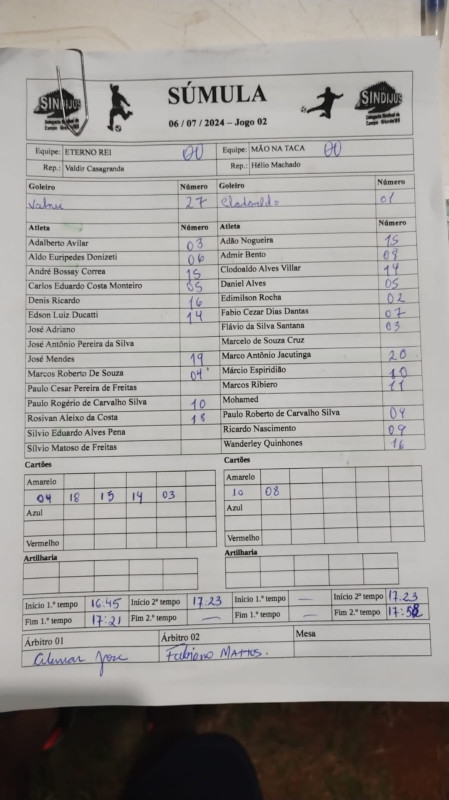 SINDIJUS
SÚMULA
06 / 07 / 2024 – Jogo 02
SINDIJUS
Equipe: ETERNO REI 00 Equipe: MÃO NA TACA 00
Rep.: Valdir Casagranda Rep.: Hélio Machado
Goleiro Número Goleiro Número
27 Clodoaldo 01
Atleta Número Atleta Número
Adalberto Avilar 03 Adão Nogueira 15
Aldo Euripedes Donizeti 06 Admir Bento 08
André Bossay Correa 15 Clodoaldo Alves Villar 14
Carlos Eduardo Costa Monteiro 05 Daniel Alves 05
Denis Ricardo 16 Edimilson Rocha 02
Edson Luiz Ducatti 14 Fabio Cezar Dias Dantas 07
José Adriano Flávio da Silva Santana 03
José Antônio Pereira da Silva Marcelo de Souza Cruz
José Mendes 19 Marco Antônio Jacutinga 20
Marcos Roberto De Souza 04 Márcio Espiridião 10
Paulo Cesar Pereira de Freitas Marcos Ribiero 11
Paulo Rogério de Carvalho Silva 10 Mohamed
Rosivan Aleixo da Costa 18 Paulo Roberto de Carvalho Silva 04
Silvio Eduardo Alves Pena Ricardo Nascimento 09
Sílvio Matoso de Freitas Wanderley Quinhones 16
Cartões Cartões
Amarelo Amarelo
04 18 15 14 03 10 08
Azul Azul
Vermelho Vermelho
Artilharia Artilharia
Início 1.º tempo 16:45 Início 2º tempo 17:23 Início 1.º tempo — Início 2º tempo 17:23
Fim 1.º tempo 17:21 Fim 2.º tempo — Fim 1.º tempo — Fim 2.º tempo 17:58
Árbitro 01 Árbitro 02 Mesa
José Fabiano Mattos.